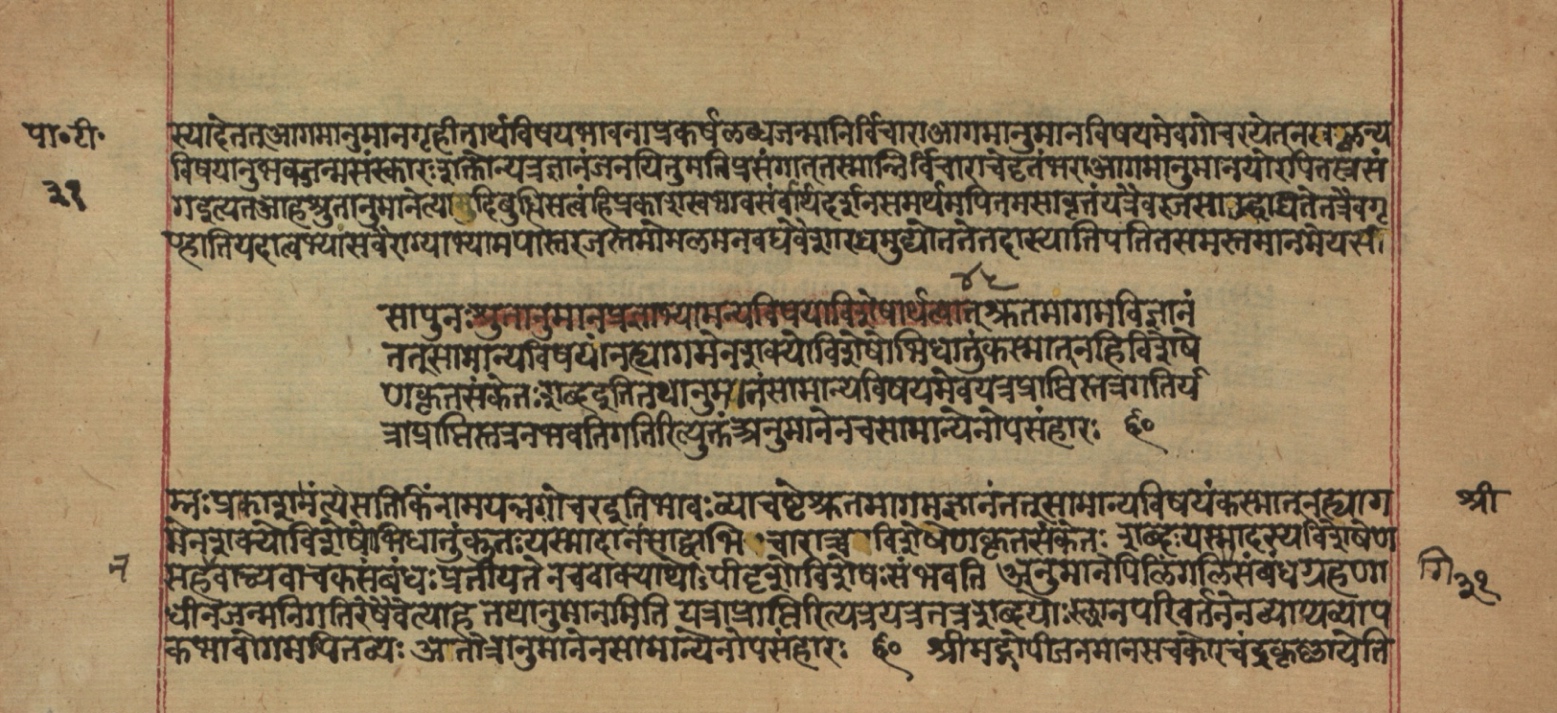 पा॰टी॰
३१
स्यादेतत्आगमानुमानगृहीतार्थविषयभावनाप्रकर्षलब्धजन्मानिर्विचाराआगमानुमानविषयमेवगोचरयेत्नखल्वन्य
विषयानुभवजन्मसंस्कारःशक्तोन्यत्रज्ञानंजनयितुमतिप्रसंगात्तस्मान्निर्विचाराचेदृतंभराआगमानुमानयोरपितत्प्रसं
गइत्यतआहश्रुतानुमानेत्यादिबुद्धिसत्वंहिप्रकाशस्वभावसंर्वार्थदर्शनसमर्थमपितमसावृतंयत्रैवरजसोद्घाद्यतेतत्रैवगृ
ण्हातियदात्वभ्यासवैराग्याभ्यामपास्तरजस्तमोमलमनवद्यवैशारद्यमुद्योततेतदास्यातिपतितसमस्तमानमेयसी
४८
सापुनःश्रुतानुमानप्रज्ञाभ्यामन्यविषयाविशेषार्थत्वात्श्रुतमागमविज्ञानं
तत्सामान्यविषयंनह्यागमेनशक्योविशेषोभिधातुंकस्मात्नहिविशेषे
णकृतसंकेतःशब्दइतितथानुमानंसामान्यविषयमेवयत्रप्राप्तिस्तत्रगतिर्य
त्राप्राप्तिस्तत्रनभवतिगतिरित्युक्तंअनुमानेनचसामान्येनोपसंहारः ६०
म्नःप्रकाशामंत्येसतिकिंनामयन्नगोचरइतिभावःव्याचष्टेश्रुतमागमज्ञानंतत्सामान्यविषयंकस्मात्नह्याग
श्री
मेनशक्योविशेषोभिधातुंकुतःयस्मादानंसाद्व्यभि चाराच्च विशेषेणकृतसंकेतः शब्दःयस्मादस्यविशेषेण
न
सहवाच्यवाचकसंबंधःप्रतीयते नचवाक्यार्थोःपीदृशोविशेषःसंभवति अनुमानेपिलिंगलिंसंबंधग्रहणा
गि३१
धीनजन्मनिगतिरेषैवेत्याह तथानुमानमिति यत्राप्राप्तिरित्यत्रयत्रतत्रशब्दयोःस्थानपरिवर्तनेनव्याप्यव्याप
कभावोगमयितव्यः अतोत्रानुमानेनसामान्येनोपसंहारः ६० श्रीमद्गोपीजनमानसचकोरचंद्रकृष्णायेति